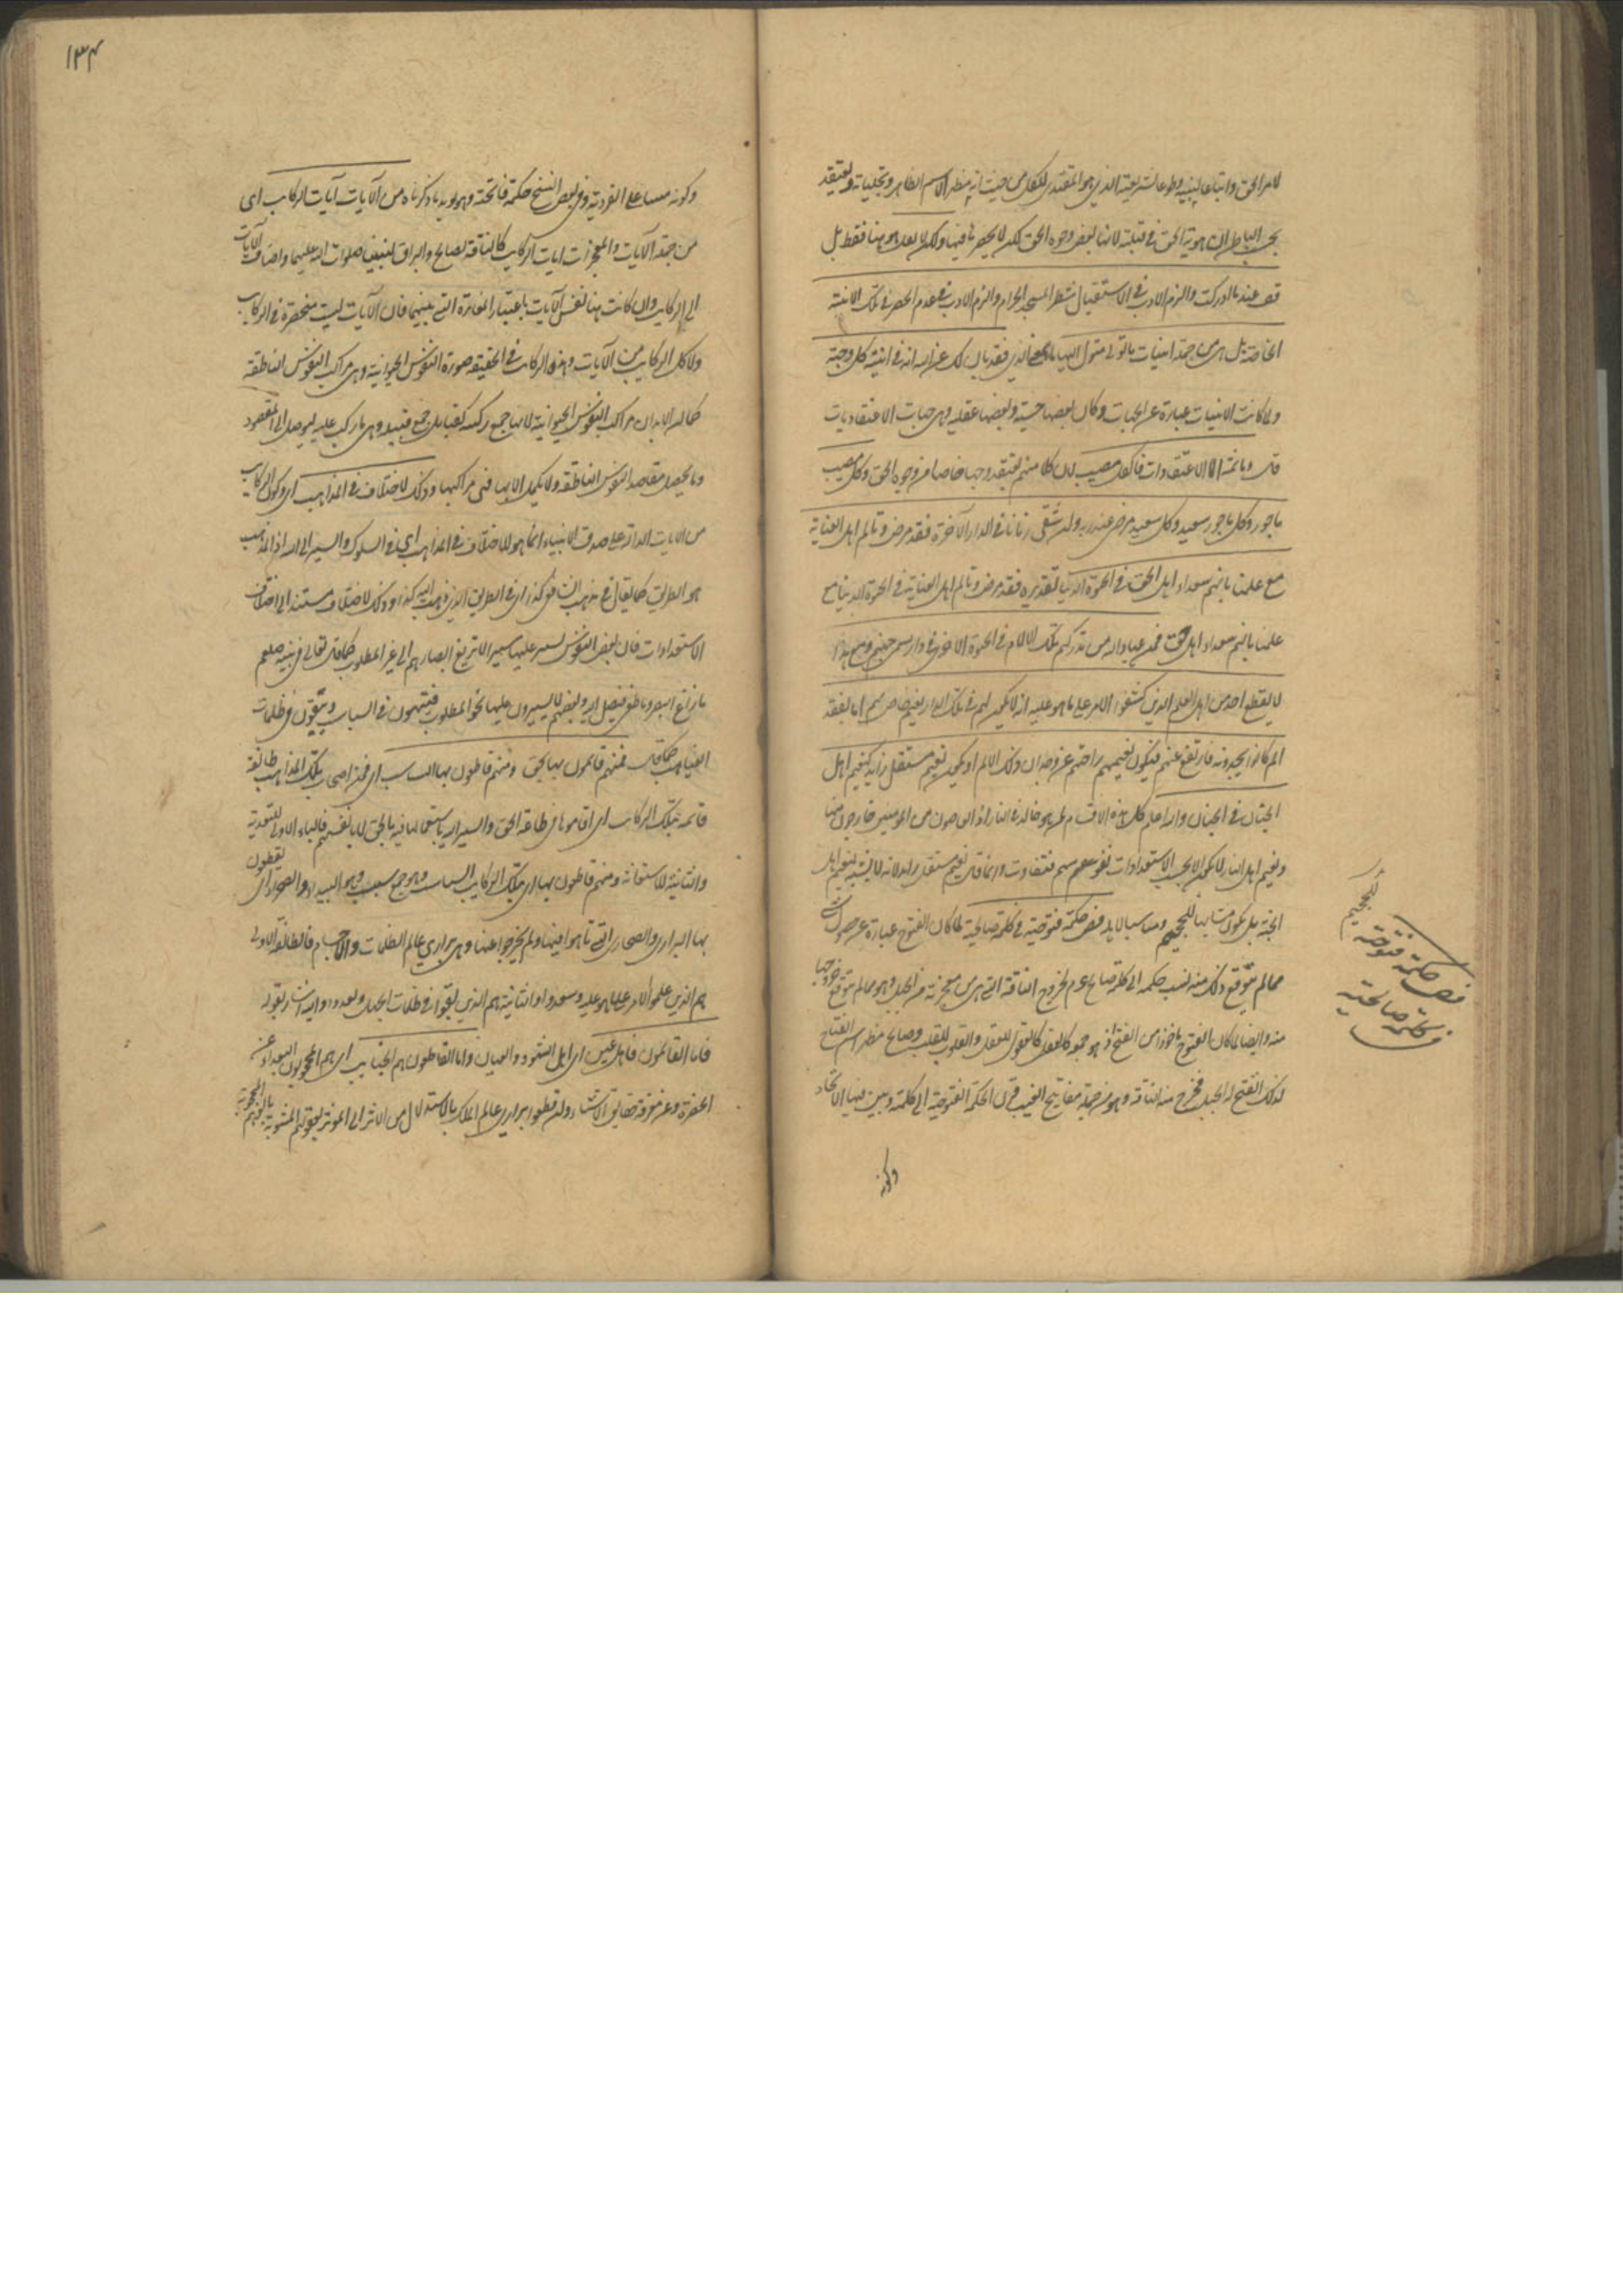 لامر الحق واتباعا لنبيه وطاعة لشريعته الذي هو المقتدى للكل من حيث انه مظهر الاسم الظاهر وتجلياته ويعتقد
بحسب الباطن ان هوية الحق في قبلته لانها بعض وجوه الحق لكن لا يحصره فيها ولكن لا تقل هو هنا فقط بل
قف عند ما ادركت والزم الادب في الاستقبال شطر المسجد الحرام والزم الادب في عدم الحصر في تلك الاينية
الخاصة بل هي من جملة اينيات ما تولى متول اليها فقد بان لك عن الله انه في اينية كل وجهة
ولما كانت الاينيات عبارة عن الجهات وكان بعضها حسية وبعضها عقلية وهي جهات الاعتقاديات
قال وما ثمة الا الاعتقادات فالكل مصيب لان كلا منهم يعتقد وجها خاصا من وجوه الحق وكل مصيب
ماجور وكل ماجور سعيد وكل سعيد مرضي عند ربه وان شقي زمانا في الدار الآخرة فقد مرض وتالم اهل العناية
مع علمنا بانهم سعداء اهل الحق في الحيوة الدنيا تقديره فقد مرض وتالم اهل العناية في الحيوة الدنيا مع
علمنا بانهم سعداء اهل حق فمن عباد الله من تدركهم تلك الالام في الحيوة الاخرى في دار يسمى جهنم ومع هذا
لا يقطع احد من اهل العلم الذين كشفوا الامر على ما هو عليه انه لا يكون لهم في تلك الدار نعيم خاص بهم اما بفقد
الم كانوا يجدونه فارتفع عنهم فيكون نعيمهم راحتهم عن وجدان ذلك الالم او يكون نعيم مستقل زايد كنعيم اهل
الجنان في الجنان والله اعلم كل هذه الاقسام لمن هو خالد في النار اذ العاصون من المؤمنين خارجون منها
ونعيم اهل النار لا يكون الا بحسب الاستعدادات نفوسهم فتفاوت وانما قال نعيم مستقل زايد لانه لا يشبه نعيم اهل
الجنة بل يكون مشابها للجحيم ومناسبا لاهله فص حكمة فتوحية في كلمة صالحية لما كان الفتوح عبارة عن حصول شئ
مما لم يتوقع ذلك منه نسب حكمه الى كلمة صالح عم لخروج الناقة التي هي من معجزته من الجبل وهو مما لم يتوقع خروجها
منه وايضا لما كان الفتوح ماخوذا من الفتح اذ هو جمعه كالعقول للعقل والقلوب للقلب وصالح مظهر اسم الفتاح
لذلك انفتح له الجبل فخرج منه الناقة وهو من جملة مفاتيح الغيب قرن الحكمة الفتوحية الى كلمته وبين فيها الايجاد
للجحيم
فص حكمة فتوحية
في كلمة صالحية
وكونه
١٣٤
وكونه مبنيا على الفردية وفي بعض النسخ حكمة فاتحية وهو يؤيد ما ذكرناه من الآيات آيات الركائب اى
من جملة الآيات والمعجزات ايات الركايب كالناقة لصالح والبراق لنبينا صلوات الله عليهما واضاف الآيات
الى الركايب وان كانت هنا نفس الآيات باعتبار المغايرة التي بينهما فان الآيات ليست منحصرة في الركايب
ولا كل الركايب من الآيات وهذه الركائب في الحقيقة صورة النفوس الحيوانية وهي مراكب النفوس الناطقة
كما ان الابدان مراكب النفوس الحيوانية لانها جمع ركيبة كقبايل جمع قبيلة وهي ما يركب عليه ليوصل الى المقصود
وما يحصل مقاصد النفوس الناطقة ولا يكمل الا بها فهي مراكبها وذلك لاختلاف في المذاهب اى وكون الركايب
من الايات الدالة على صدق الانبياء انما هو للاختلاف في المذاهب اى في السلوك والسير الى الله اذ المذهب
هو الطريق كما يقال مذهب الشافعي كذا اى في الطريق الذي ذهب اليه كذا وذلك الاختلاف مستند الى اختلاف
الاستعدادات فان بعض النفوس يسير عليها سيرا لا تزيغ ابصارهم الى غير المطلوب كما قال تعالى في نبيه صلعم
ما زاغ البصر وما طغى فيصل اليه وبعضهم لا يسيرون عليها نحو المطلوب فيتيهون في السباسب ويبقون في ظلمات
الغياهب كما قال فمنهم قائمون بها بحق ومنهم قاطعون بها السباسب اى فمن اصحاب تلك المذاهب طائفة
قائمة بتلك الركائب اى اقاموها في طاعة الحق والسير اليه باستعمالها فيه بالحق لا بانفسهم فالباء الاولى للتعدية
والثانية للاستعانة ومنهم قاطعون بها اى بتلك الركايب السباسب وهو جمع سبسب وهو البيداء والصحراء اى يقطعون
بها البراري والصحارى التي تاهوا فيها ولم يخرجوا عنها وهي براري عالم الظلمات والاجسام فالطائفة الاولى
هم الذين علموا الامر على ما هو عليه وسعدوا والثانية هم الذين بقوا في ظلمات الجهل وبعدوا واليه اشار بقوله
فاما القائمون فاهل عين اى اهل الشهود والعيان واما القاطعون هم الجنايب اى هم المحجوبون البعداء عن
الحضرة وعن معرفة حقايق الاشياء وان قطعوا براري عالم الملك بالاستدلال من الاثر الى المؤثر بعقولهم المشوبة بالوهم المحجوبة